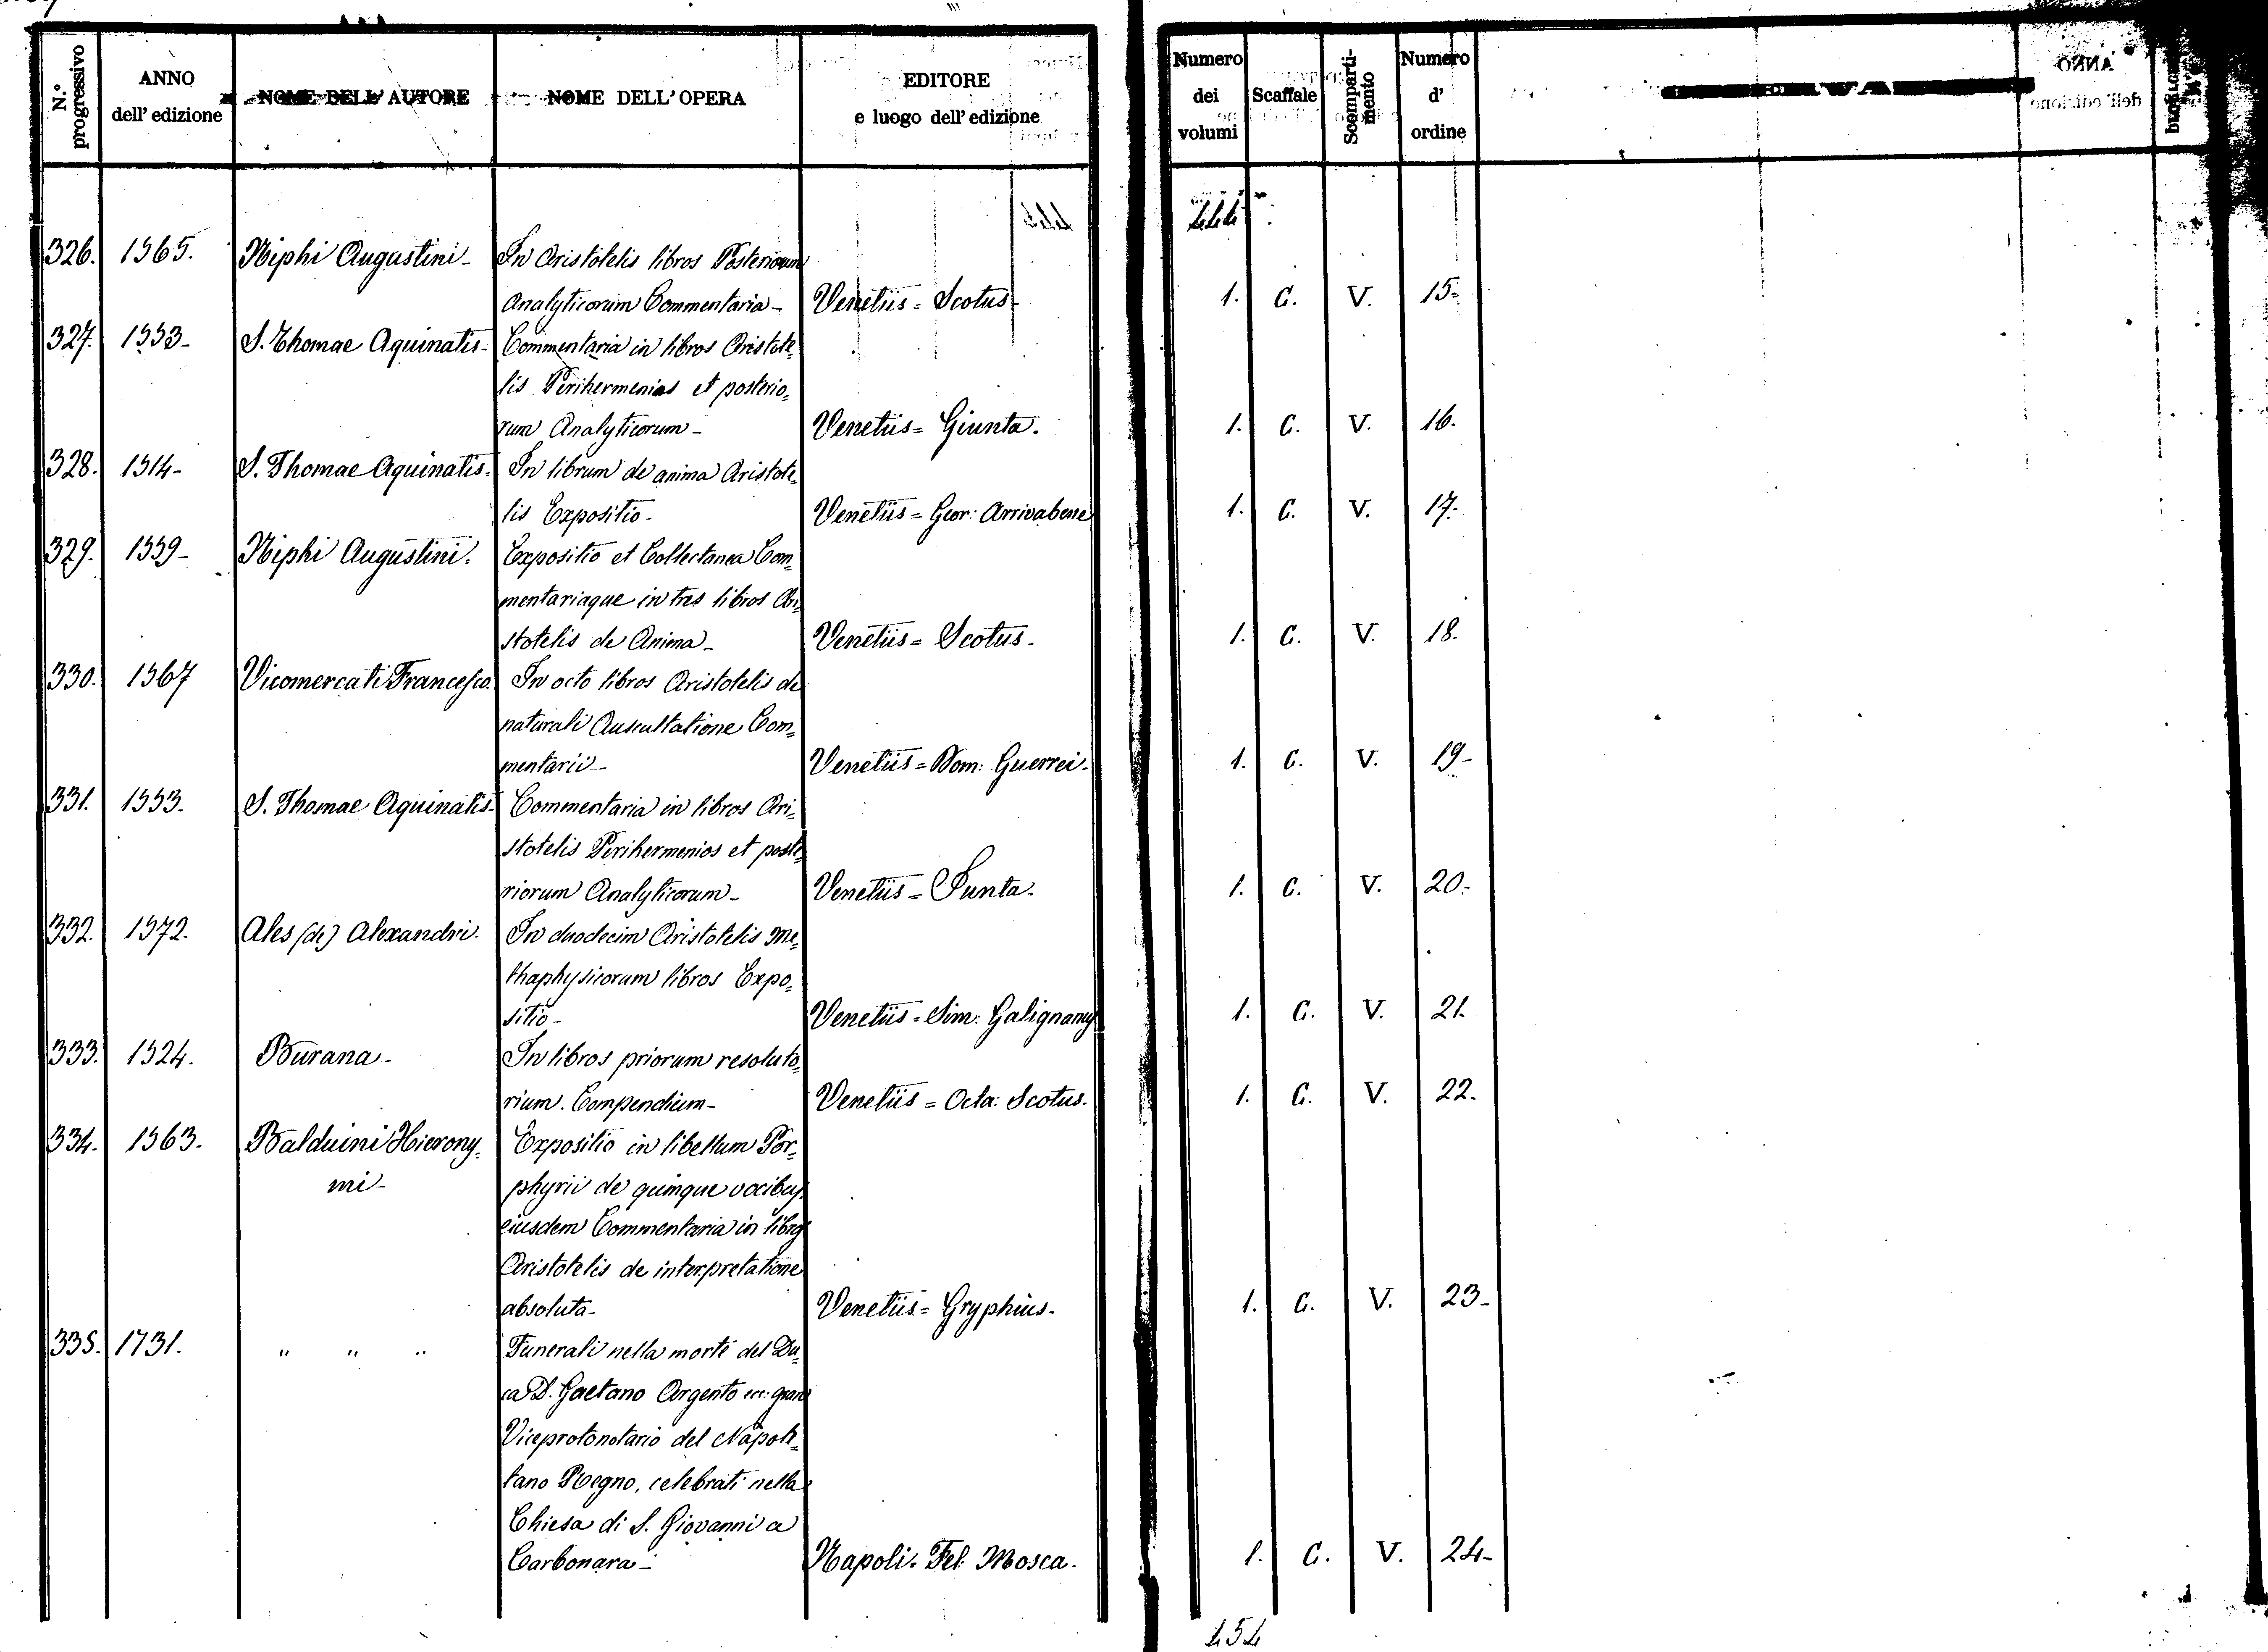 N.º progressivo
ANNO dell' edizione
NOME DELL' AUTORE
NOME DELL' OPERA
EDITORE e luogo dell' edizione
Numero dei volumi
Scaffale
Scomparti-mento
Numero d' ordine
444
326. 1565. Niphi Augustini - In Aristotelis libros Posteriorum
Analyticorum Commentaria - Venetiis = Scotus - 1. C. V. 15.
327. 1553 - S. Thomae Aquinatis - Commentaria in libros Aristote=
lis Perihermenias et posterio=
rum Analyticorum - Venetiis = Giunta. 1. C. V. 16.
328. 1514 - S. Thomae Aquinatis. In librum de anima Aristote=
lis Expositio - Venetiis = Geor: Arrivabene 1. C. V. 17.
329. 1559 - Niphi Augustini. Expositio et Collectanea Com=
mentariaque in tres libros Ari=
stotelis de Anima - Venetiis = Scotus - 1. C. V. 18.
330. 1567 Vicomercati Francesco. In octo libros Aristotelis de
naturali Auscultatione Com=
mentarii - Venetiis = Dom: Guerrei - 1. C. V. 19 -
331. 1553. S. Thomae Aquinatis - Commentaria in libros Ari=
stotelis Perihermenios et poste=
riorum Analyticorum - Venetiis = Junta. 1. C. V. 20.
332. 1572. Ales (de) Alexandri. In duodecim Aristotelis Me=
thaphysicorum libros Expo=
sitio - Venetiis = Sim: Galignany 1. C. V. 21.
333. 1524. Burana - In libros priorum resoluto=
rium. Compendium - Venetiis = Octa: Scotus. 1. C. V. 22.
334. 1563. Balduini Hierony= Expositio in libellum Por=
mi - phyrii de quinque vocibus
eiusdem Commentaria in libros
Aristotelis de interpretatione
absoluta - Venetiis = Gryphius - 1. C. V. 23 -
335. 1731. " " " Funerali nella morte del Du=
ca D. Gaetano Argento ecc: gran
Viceprotonotario del Napole=
tano Regno, celebrati nella
Chiesa di S. Giovanni a
Carbonara - Napoli = Fel. Mosca. 1. C. V. 24 -
454